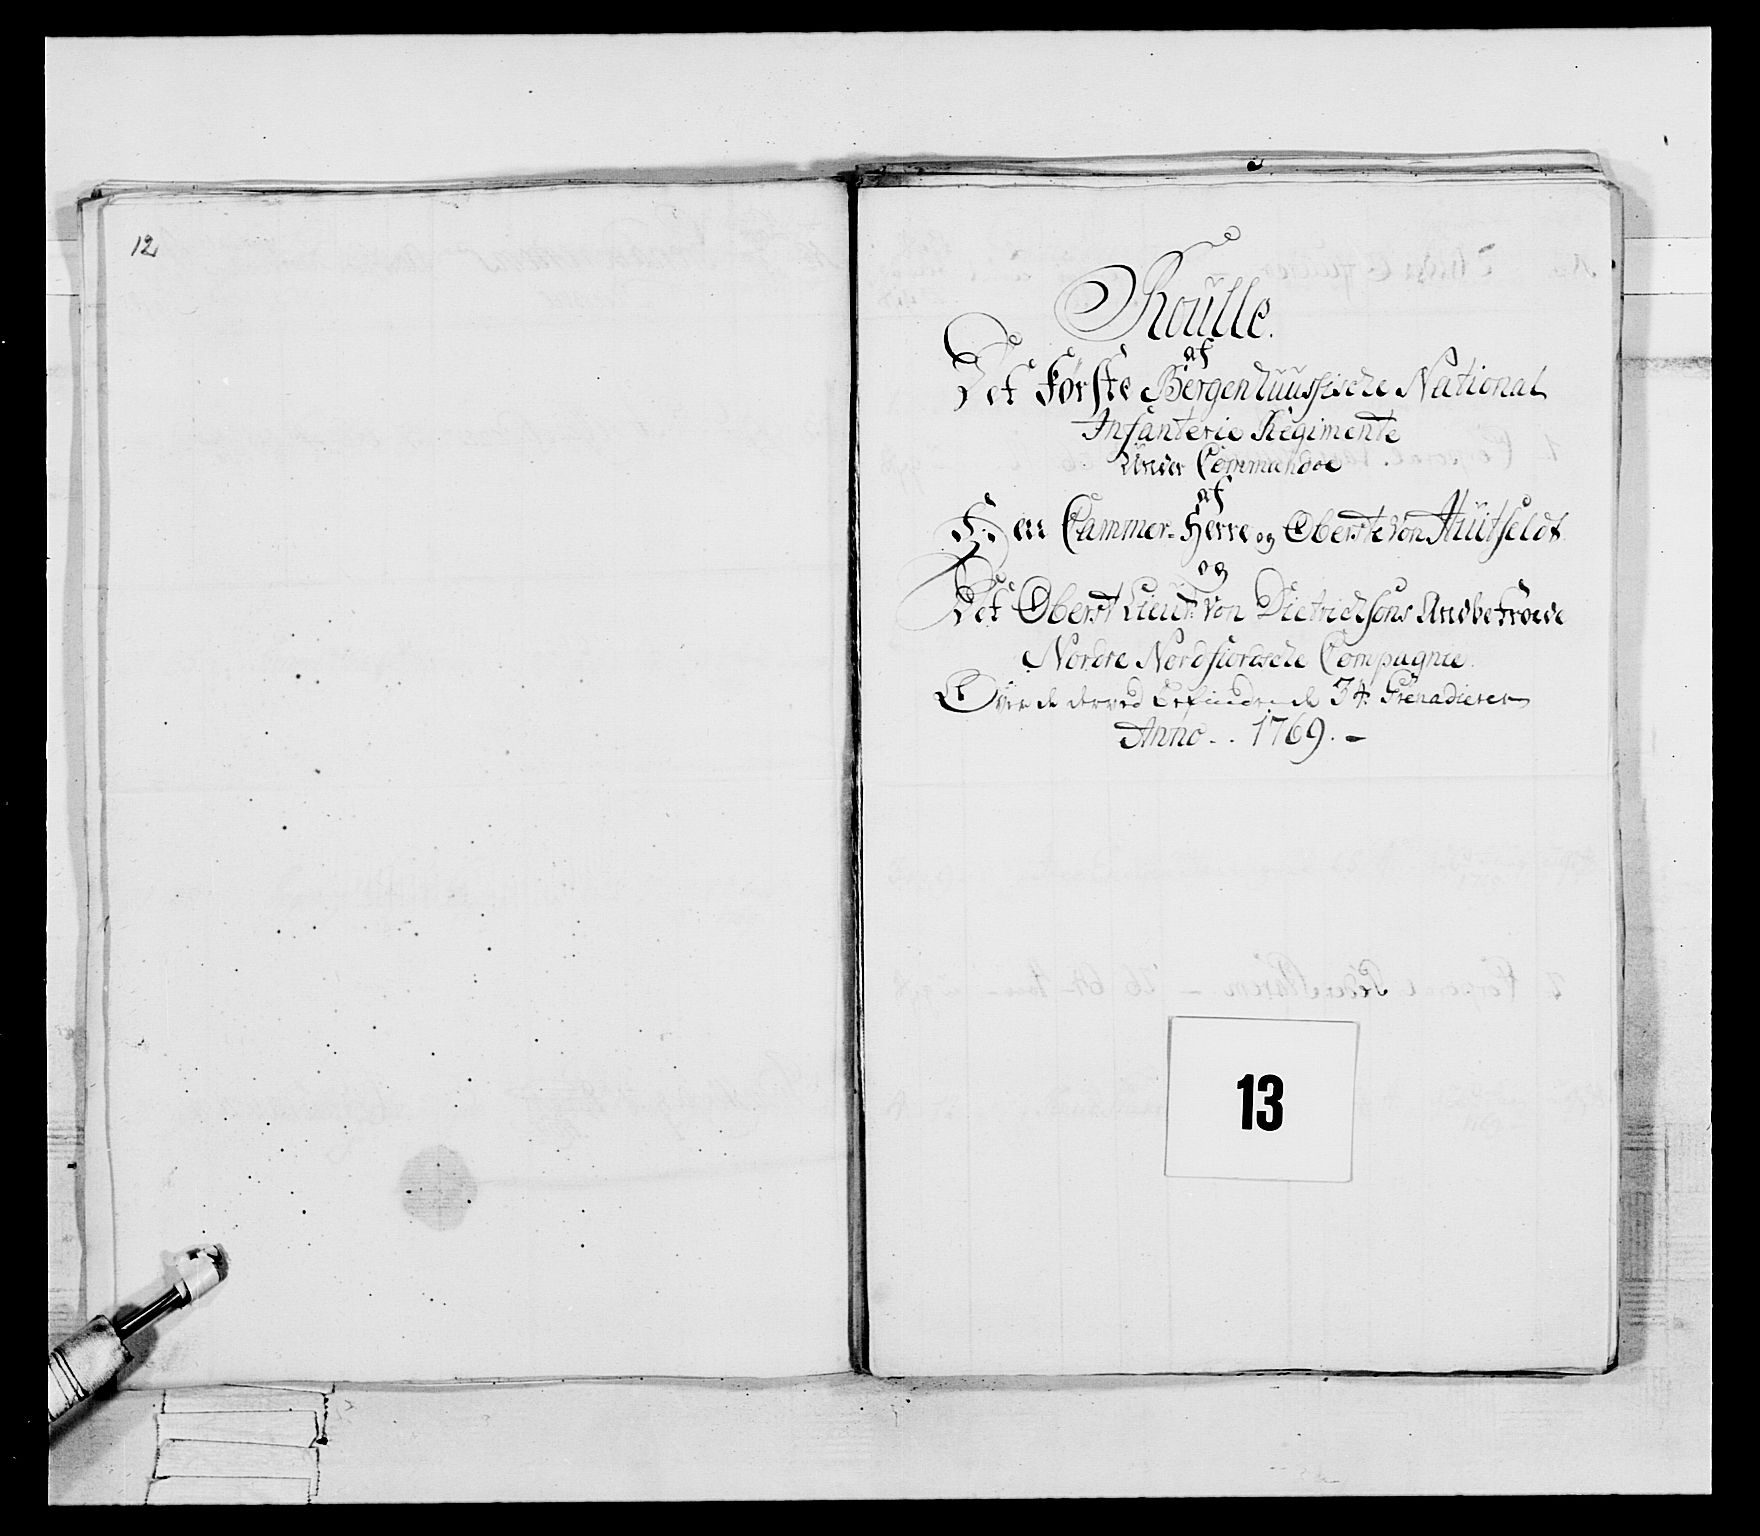 12
Roulle.
af
Det Første Bergenhuusische National
Infanterie Regimente
Under Commandoe
af
Hr. Cammer-Herre og Oberste von Hüitfeldt
og
Det Oberst Lieut: von Dietrichsons Andbetroede
Nordre Nordfiordsche Compagnie.
Over de derved befindende 34 Grenadierer
Anno - . 1769. -
13